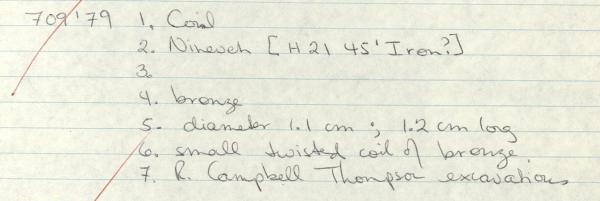 709'79 1. Coil
2. Nineveh [H21 45' Iron?]
3.
4. bronze
5. diameter 1.1 cm ; 1.2 cm long
6. small twisted coil of bronze.
7. R. Campbell Thompson excavations